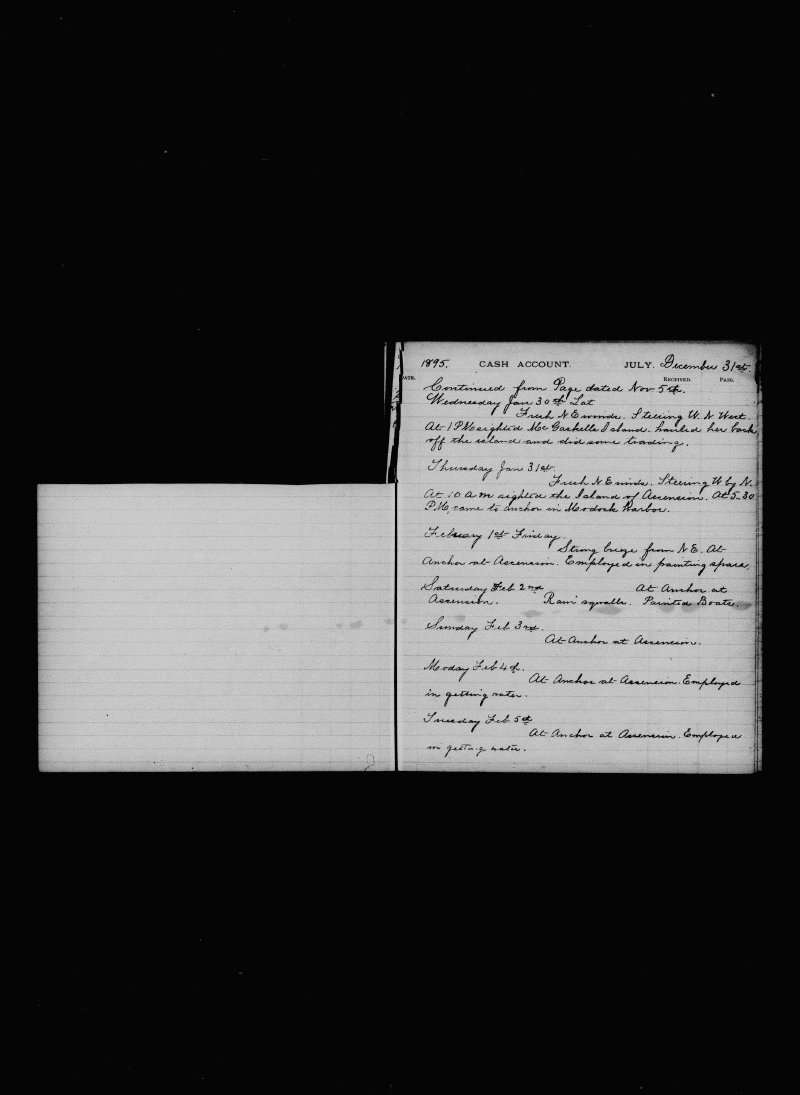 1895. CASH ACCOUNT. JULY. December 31st.
DATE. RECEIVED. PAID.
Continued from Page dated Nov 5th.
Wednesday Jan 30th Lat
Fresh N E winds. Steering W. N West.
At 1 PM sighted Mc Gaskells Island. hauled her back
off the island and did some trading.
Thursday Jan 31st.
Fresh N E winds. Steering W by N.
At 10 am sighted the Island of Ascension. At 5-30
PM, came to anchor in Modock Harbor.
February 1st Friday.
Strong breze from N E. At
Anchor at Ascension. Employed in painting spars,
Saturday Feb 2nd At Anchor at
Ascension. Rain squalls. Painted Boats.
Sunday Feb 3rd.
At Anchor at Ascension.
Moday Feb 4th.
At Anchor at Ascension. Employed
in getting water.
Tuesday Feb 5th
At Anchor at Ascension. Employed
in getting water.